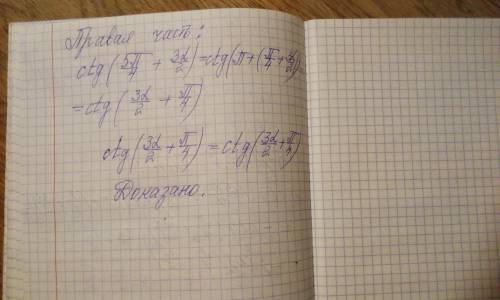 Правая часть:
ctg(5π/4 + 3α/2) = ctg(π + (π/4 + α/2))
= ctg(3α/2 + π/4)
ctg(3α/2 + π/4) = ctg(3α/2 + π/4)
Доказано.